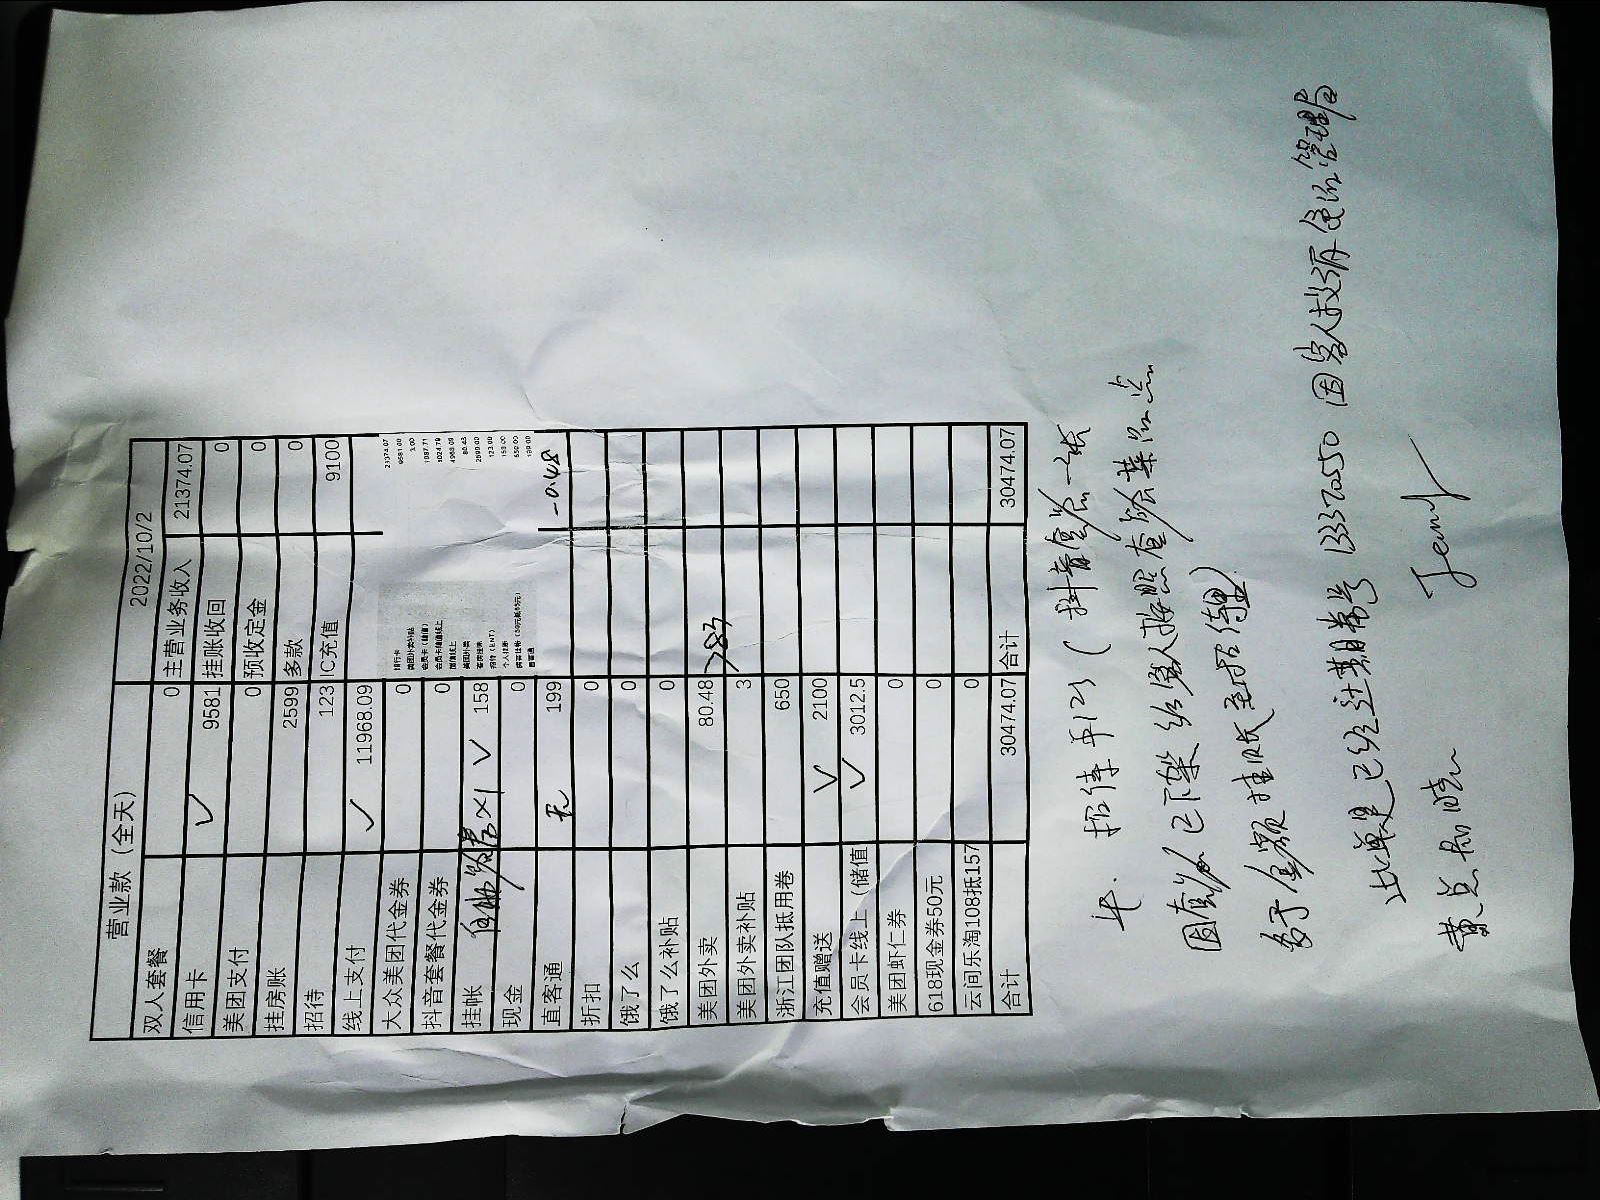 营业款（全天） 2022/10/2
双人套餐 0 主营业务收入 21374.07
信用卡 9581 挂账收回 0
美团支付 0 预收定金 0
挂房账 2599 多款 0
招待 123 IC充值 9100
线上支付 11968.09
大众美团代金券 0
抖音套餐代金券 0
挂帐 158
现金 0
直客通 无 199 -0.48
折扣 0
饿了么 0
饿了么补贴 0
美团外卖 80.48
美团外卖补贴 3
浙江团队抵用卷 650
充值赠送 2100
会员卡线上（储值 3012.5
美团虾仁券 0
618现金券50元 0
云间乐淘108抵157 0
合计 30474.07 合计 30474.07
21374.07
9581.00
3.00
1987.71
1024.79
4968.09
80.48
2599.00
123.00
158.00
650.00
199.00
招待单123（抖音套餐一张
因套餐已下架 给客人按照套餐菜品点
多余金额挂账至招待里）
此单是已经过期券号 13370550 因客人投诉
Jenny